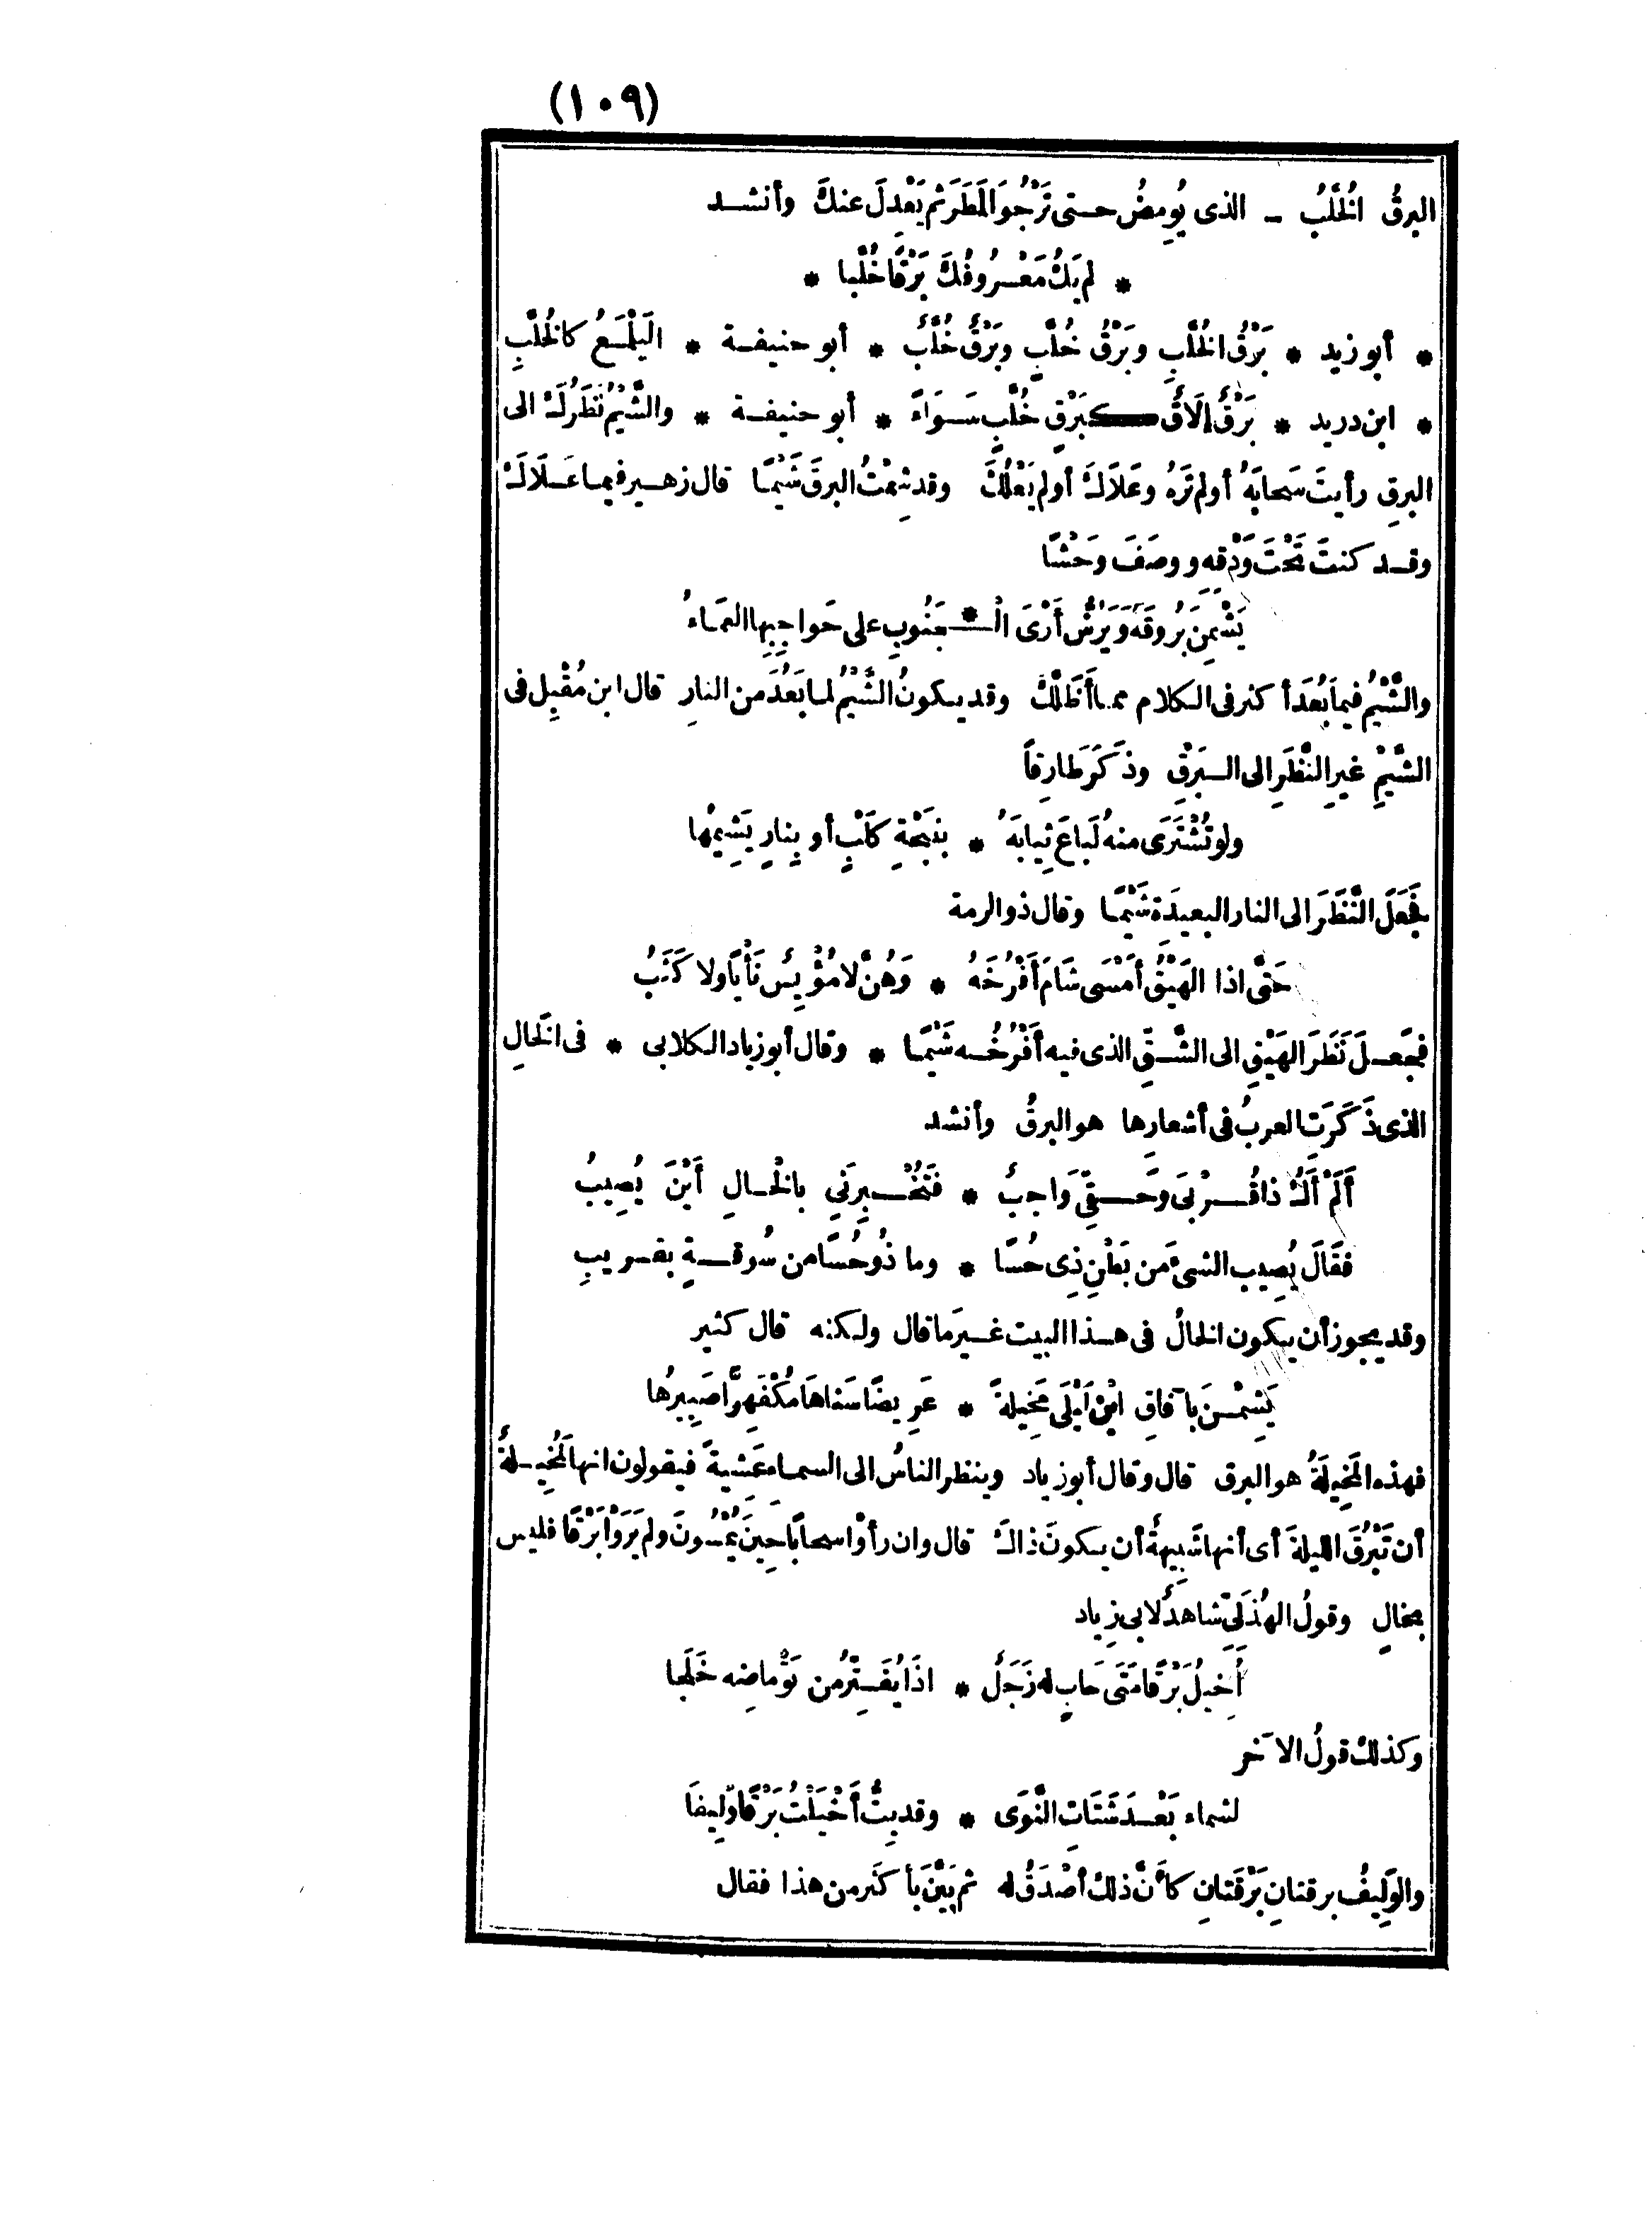 (١٠٩)
البرقُ الخُلَّبُ ـ الذى يُومِضُ حتى تَرْجُوَ المَطَرَ ثم يَعْدِلَ عنكَ وأنشد
* لم يَكُ مَعْرُوفُكَ بَرْقًا خُلَّبا *
* أبو زيد * بَرْقُ الخُلَّبِ وبَرْقُ خُلَّبٍ وبَرْقٌ خُلَّبٌ * أبو حنيفة * اليَلْمَعُ كالخُلَّبِ
* ابن دريد * بَرْقٌ إلَاقٌ كبَرْقٍ خُلَّبٍ سَوَاءً * أبو حنيفة * والشَّيْمُ نَظَرُكَ الى
البرقِ رأيتَ سَحابَهُ أو لم تَرَهُ وعَلَاكَ أو لم يَعْلُكَ وقد شِمْتُ البرقَ شَيْمًا قال زهير فيما عَلَاكَ
وقد كنتَ تَحْتَ وَدْقِه ووصَفَ وَحْشًا
يَشِمْنَ بُرُوقَهُ ويَرُشُّ أَرْىَ الْـ * ـجَنُوبِ على حَواجِبِها العَمَاءُ
والشَّيْمُ فيما بَعُدَ أكثر فى الكلام مما أَظَلَّكَ وقد يكونُ الشَّيْمُ لما بَعُدَ من النارِ قال ابن مُقْبِل فى
الشَّيْمِ غيرِ النَّظَرِ الى البَرْقِ وذَكَرَ طارِقاً
ولو تُشْتَرَى منهُ لَباعَ ثِيابَهُ * بنَبْحَةِ كَلْبٍ أو بِنارٍ يَشِيمُها
فَجَعَلَ النَّظَرَ الى النار البعيدَةِ شَيْمًا وقال ذو الرمة
حَتَّى اذا الهَيْقُ أَمْسَى شَامَ أَفْرُخَهُ * وَهُنَّ لا مُؤْيِسٌ نَأْيًا ولا كَثَبُ
فجَعَلَ نَظَرَ الهَيْقِ الى الشِّقِّ الذى فيه أَفْرُخُه شَيْمًا * وقال أبو زياد الكلابى * فى الخَالِ
الذى ذَكَرَتِ العربُ فى أشعارِها هو البرقُ وأنشد
أَلَمْ أَكُ ذا قُرْبَى وَحَقِّىَ وَاجِبٌ * فَتُخْبِرَنِى بالخَالِ أَيْنَ يُصِيبُ
فَقَالَ يُصِيب الشىءَ من بَطْنِ ذِى حُسًا * وما ذُو حُسًا من سُوقةٍ بقريبِ
وقد يجوز أن يكون الخالُ فى هذا البيت غيرَ ما قال ولكنه قال كثير
يَشِمْنَ بآفاقِ ابْنِ لَيْلَى مَخِيلةً * عَرِيضًا سَناهَا مُكْفَهِرًّا صَبِيرُها
فهذه المَخِيلَةُ هو البرق قال وقال أبو زياد وينظر الناسُ الى السماء عَشيةً فيقولون انها لَمُخِيلةٌ
أن تَبْرُقَ الليلةَ أى أنها شَبِيهةٌ أن يكونَ ذاكَ قال وان رأَوْا سحابًا حِينَ يُمْسُونَ ولم يَرَوْا بَرْقًا فليس
بخالٍ وقولُ الهُذَلِىِّ شاهدٌ لابى زِياد
أُخِيلُ بَرْقًا مَتَى حَابٍ له زَجَلٌ * اذا يُفَتِّرُ من تَوْماضِه خَلَجا
وكذلك قولُ الآخر
لشماء بَعْدَ شَتَاتِ النَّوَى * وقد بِتُّ أَخْيَلْتُ بَرْقًا وَلِيفَا
والوَلِيفُ برقتانِ بَرْقَتانِ كأنَّ ذلك أَصْدَقُ له ثم بَيَّنَ بأكثرَ من هذا فقال